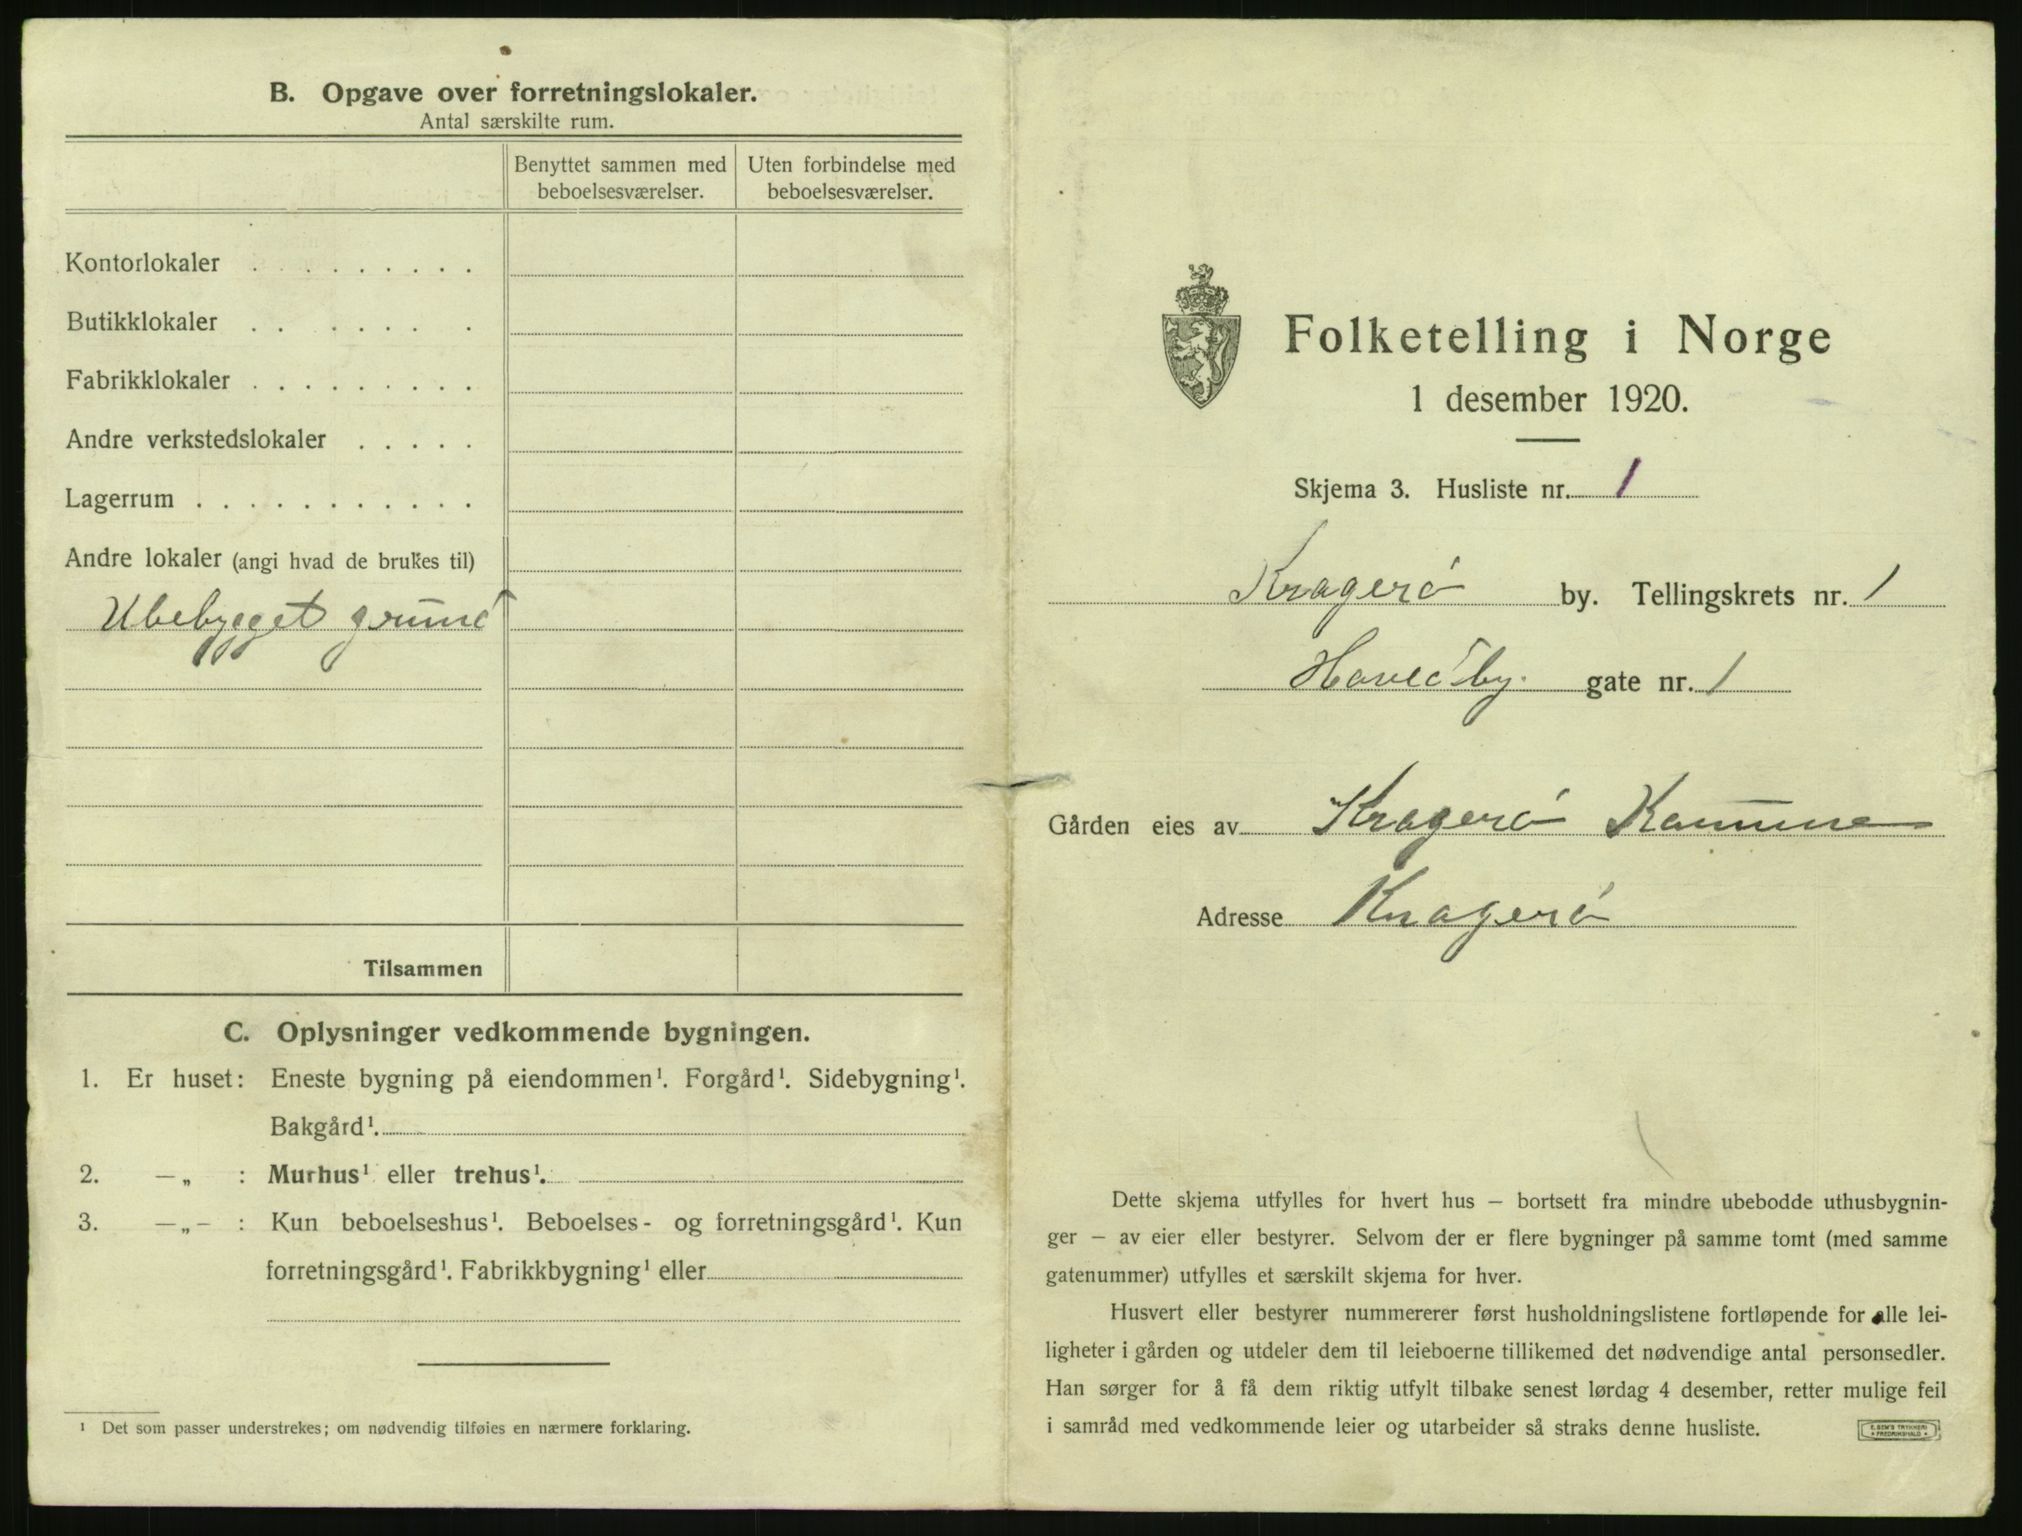 B. Opgave over forretningslokaler.
Antal særskilte rum.
Benyttet sammen med beboelsesværelser.
Uten forbindelse med beboelsesværelser.
Kontorlokaler . . . . . . . . .
Butikklokaler . . . . . . .
Fabrikklokaler . . . . . . . . .
Andre verkstedslokaler . . . . .
Lagerrum . . . . . . . . . . .
Andre lokaler (angi hvad de brukes til)
Ubebygget grund
Tilsammen
C. Oplysninger vedkommende bygningen.
1. Er huset: Eneste bygning på eiendommen¹. Forgård¹. Sidebygning¹.
Bakgård¹.
2. —„ : Murhus¹ eller trehus¹.
3. —„— : Kun beboelseshus¹. Beboelses- og forretningsgård¹. Kun
forretningsgård¹. Fabrikkbygning¹ eller
¹ Det som passer understrekes; om nødvendig tilføies en nærmere forklaring.
Folketelling i Norge
1 desember 1920.
Skjema 3. Husliste nr. 1
Kragerö by. Tellingskrets nr. 1
gate nr. 1
Gården eies av Kragerö Kommune
Adresse Kragerö
Dette skjema utfylles for hvert hus – bortsett fra mindre ubebodde uthusbygnin-
ger – av eier eller bestyrer. Selvom der er flere bygninger på samme tomt (med samme
gatenummer) utfylles et særskilt skjema for hver.
Husvert eller bestyrer nummererer først husholdningslistene fortløpende for alle lei-
ligheter i gården og utdeler dem til leieboerne tillikemed det nødvendige antal personsedler.
Han sørger for å få dem riktig utfylt tilbake senest lørdag 4 desember, retter mulige feil
i samråd med vedkommende leier og utarbeider så straks denne husliste.
E. SEM'S TRYKKERI
• FREDRIKSHALD •